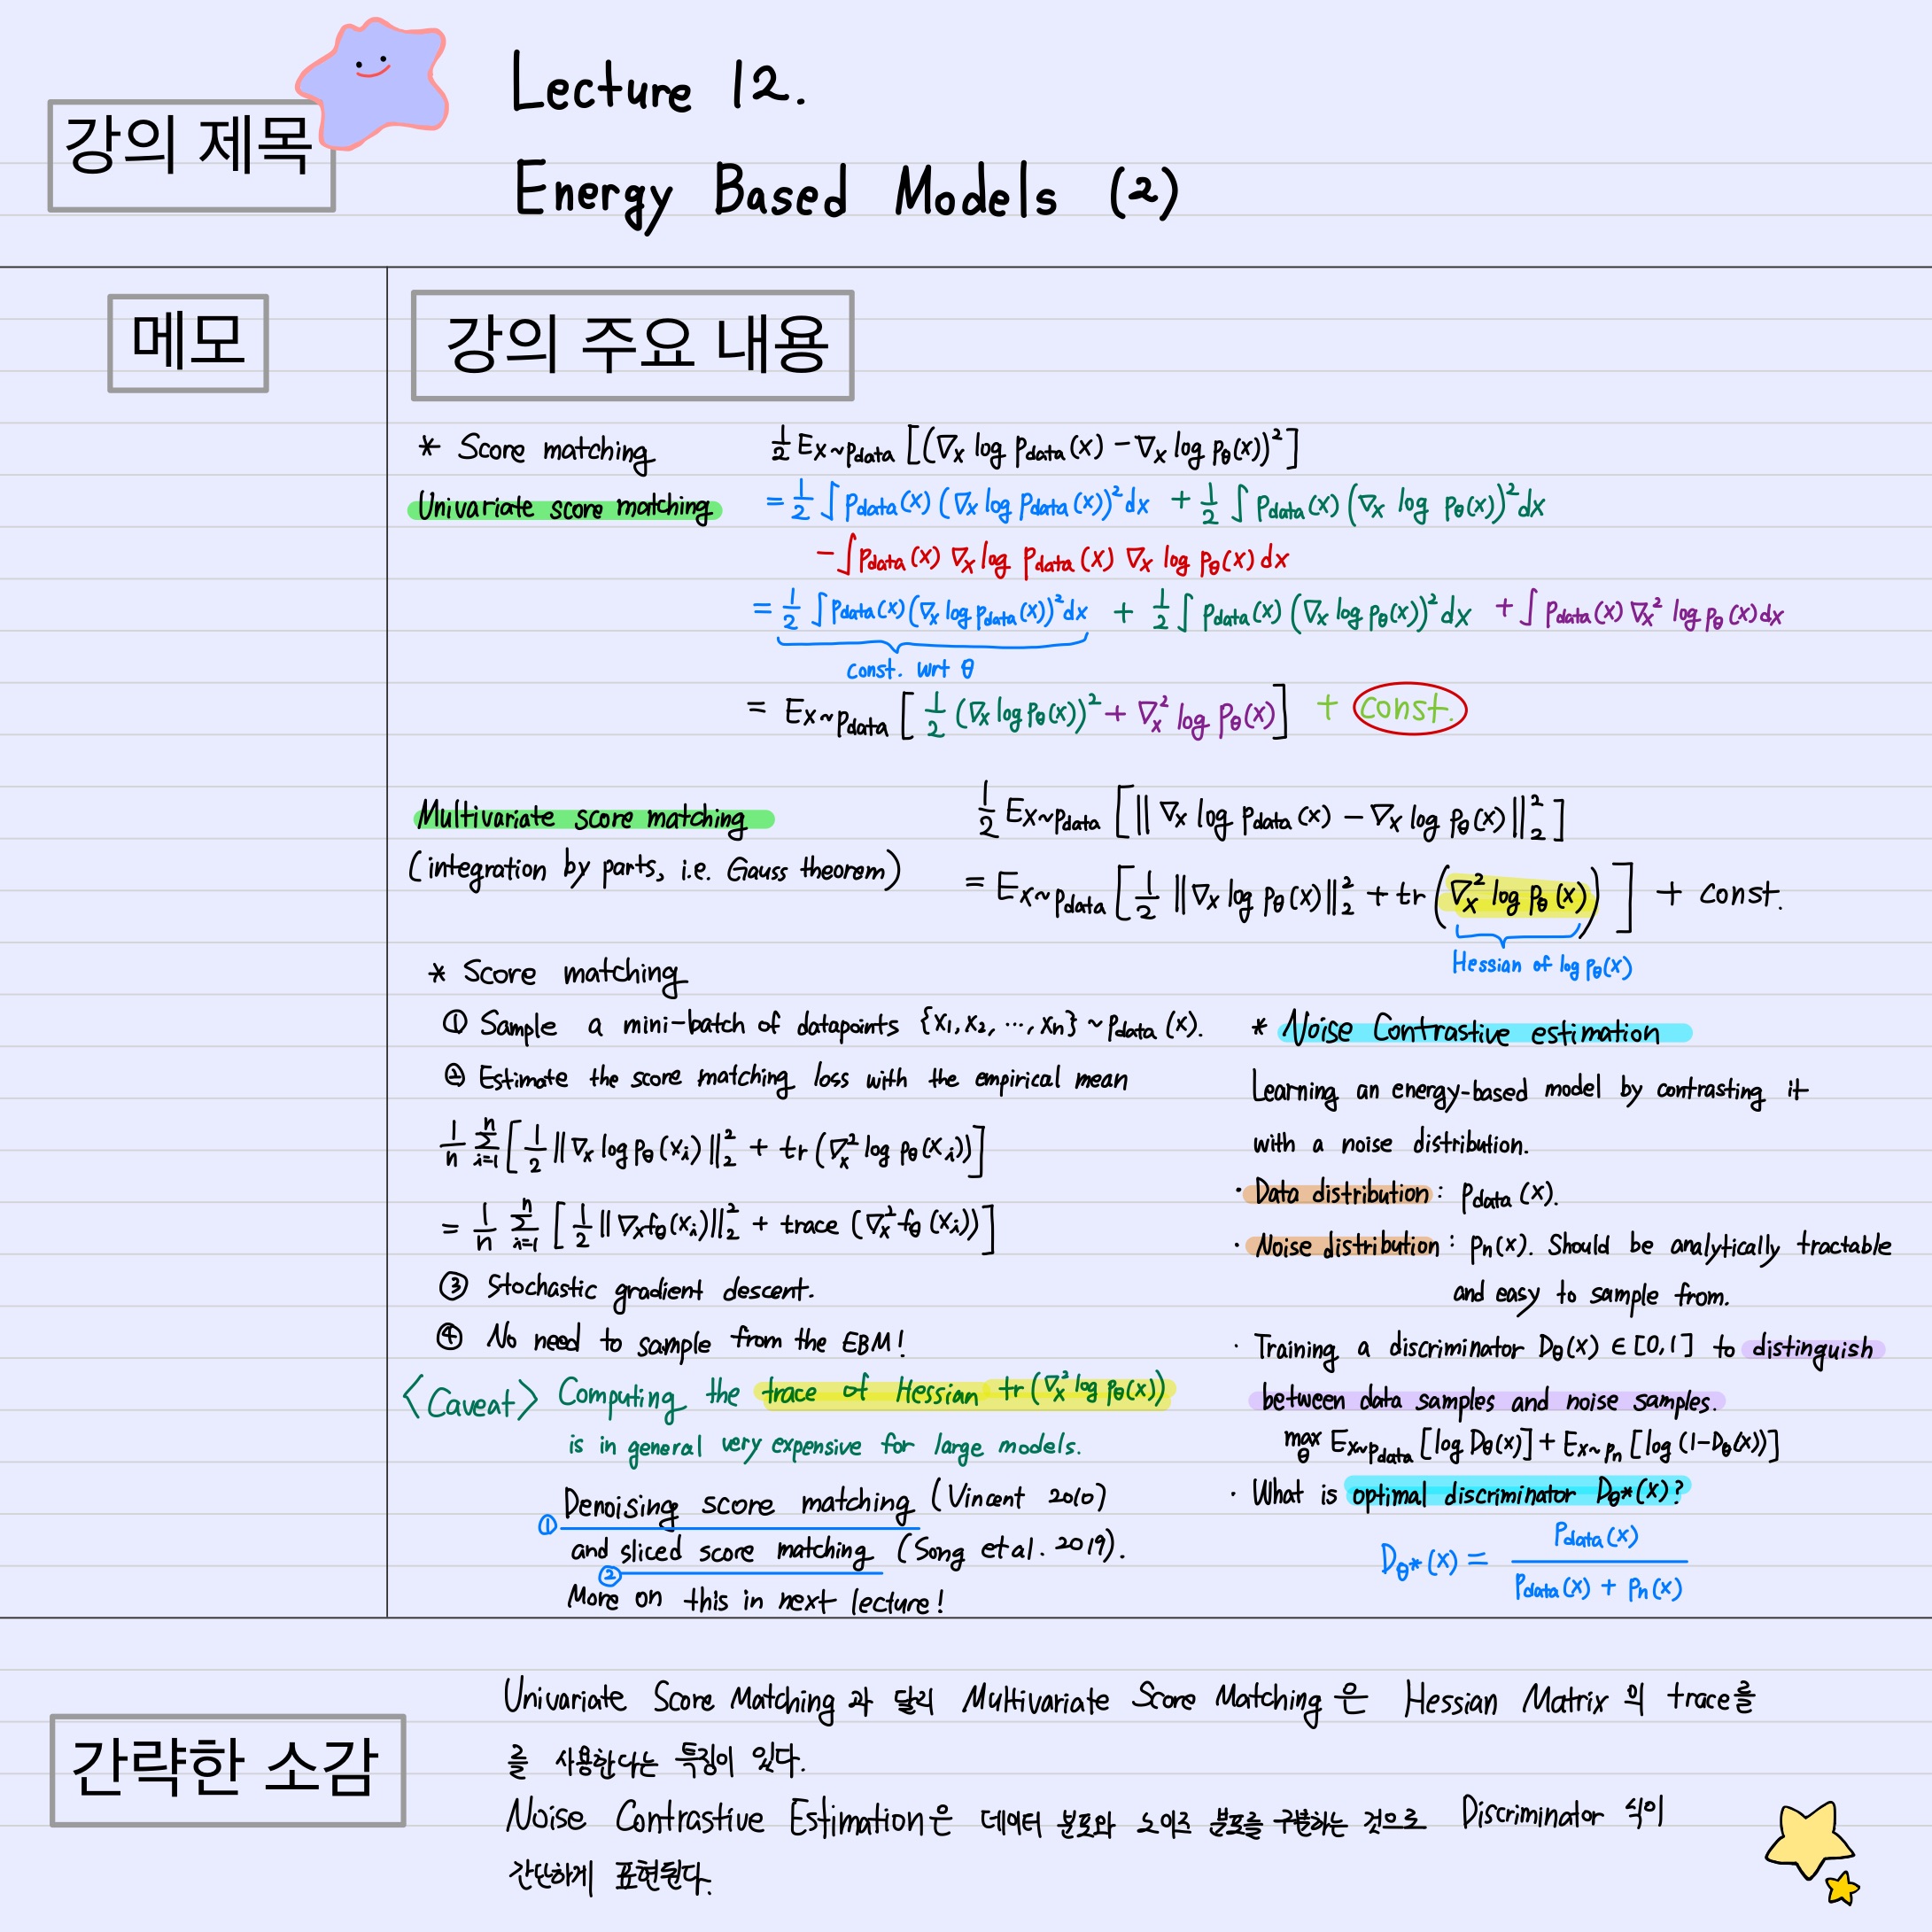 강의 제목
Lecture 12.
Energy Based Models (2)
메모
강의 주요 내용
* Score matching
½ E_{x~p_data} [(∇_x log p_data(x) − ∇_x log p_θ(x))²]
Univariate score matching
= ½ ∫ p_data(x) (∇_x log p_data(x))² dx + ½ ∫ p_data(x) (∇_x log p_θ(x))² dx
− ∫ p_data(x) ∇_x log p_data(x) ∇_x log p_θ(x) dx
= ½ ∫ p_data(x) (∇_x log p_data(x))² dx + ½ ∫ p_data(x) (∇_x log p_θ(x))² dx + ∫ p_data(x) ∇_x² log p_θ(x) dx
const. wrt θ
= E_{x~p_data} [½ (∇_x log p_θ(x))² + ∇_x² log p_θ(x)] + const.
Multivariate score matching
½ E_{x~p_data} [‖∇_x log p_data(x) − ∇_x log p_θ(x)‖₂²]
(integration by parts, i.e. Gauss theorem)
= E_{x~p_data} [½ ‖∇_x log p_θ(x)‖₂² + tr(∇_x² log p_θ(x))] + const.
Hessian of log p_θ(x)
* Score matching
① Sample a mini-batch of datapoints {x₁, x₂, ⋯, xₙ} ~ p_data(x).
② Estimate the score matching loss with the empirical mean
1/n Σ_{i=1}^n [½ ‖∇_x log p_θ(x_i)‖₂² + tr(∇_x² log p_θ(x_i))]
= 1/n Σ_{i=1}^n [½ ‖∇_x f_θ(x_i)‖₂² + trace (∇_x² f_θ(x_i))]
③ Stochastic gradient descent.
④ No need to sample from the EBM!
<Caveat> Computing the trace of Hessian tr(∇_x² log p_θ(x))
is in general very expensive for large models.
① Denoising score matching (Vincent 2010)
and sliced score matching (Song et al. 2019).
②
More on this in next lecture!
* Noise Contrastive estimation
Learning an energy-based model by contrasting it
with a noise distribution.
· Data distribution : p_data(x).
· Noise distribution : p_n(x). Should be analytically tractable
and easy to sample from.
· Training a discriminator D_θ(x) ∈ [0,1] to distinguish
between data samples and noise samples.
max_θ E_{x~p_data} [log D_θ(x)] + E_{x~p_n} [log (1−D_θ(x))]
· What is optimal discriminator D_θ*(x)?
D_θ*(x) = p_data(x) / (p_data(x) + p_n(x))
간략한 소감
Univariate Score Matching 과 달리 Multivariate Score Matching 은 Hessian Matrix 의 trace를
를 사용한다는 특징이 있다.
Noise Contrastive Estimation은 데이터 분포와 노이즈 분포를 구분하는 것으로 Discriminator 식이
간단하게 표현된다.